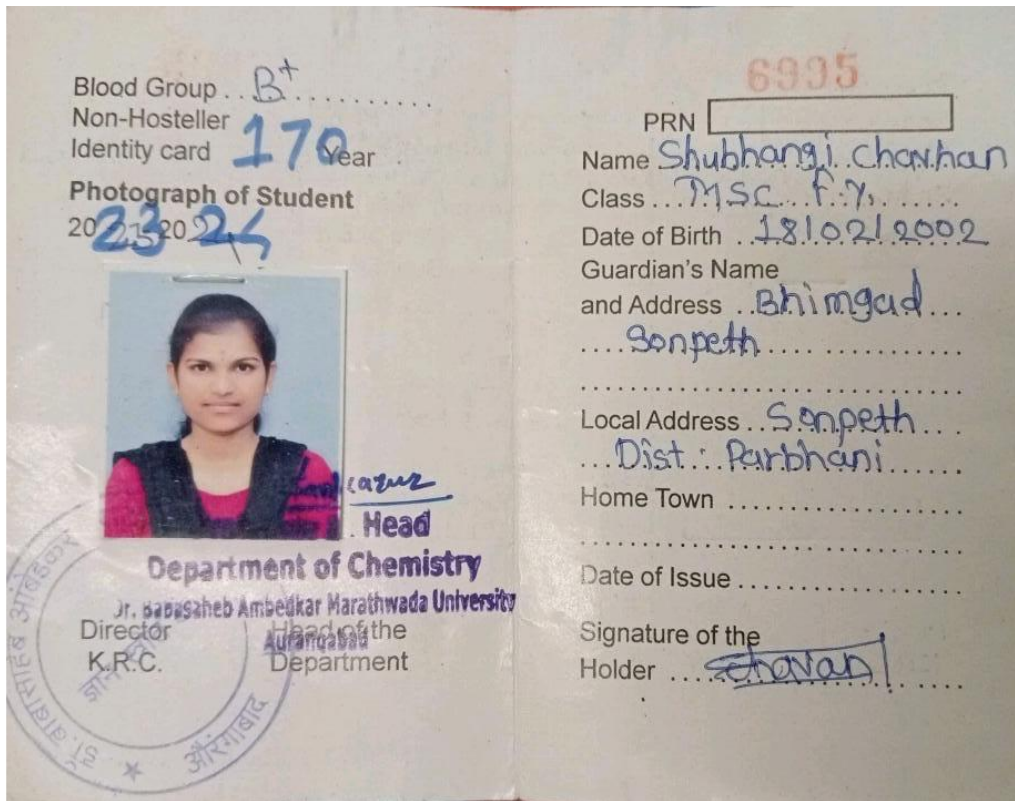 Blood Group .. B+ ............
Non-Hosteller
Identity card 170 Year
Photograph of Student
2023-2024
Head
Department of Chemistry
Dr. Babasaheb Ambedkar Marathwada University
Aurangabad
Director
K.R.C.
Head of the
Department
डॉ. बाबासाहेब आंबेडकर
औरंगाबाद
6995
PRN
Name Shubhangi Chavhan
Class ... MSC F.Y. .......
Date of Birth .. 18/02/2002
Guardian's Name
and Address .. Bhimgad ...
.... Sonpeth ..............
Local Address .. Sonpeth ...
... Dist : Parbhani ......
Home Town ................
Date of Issue ................
Signature of the
Holder .... Chavan ......